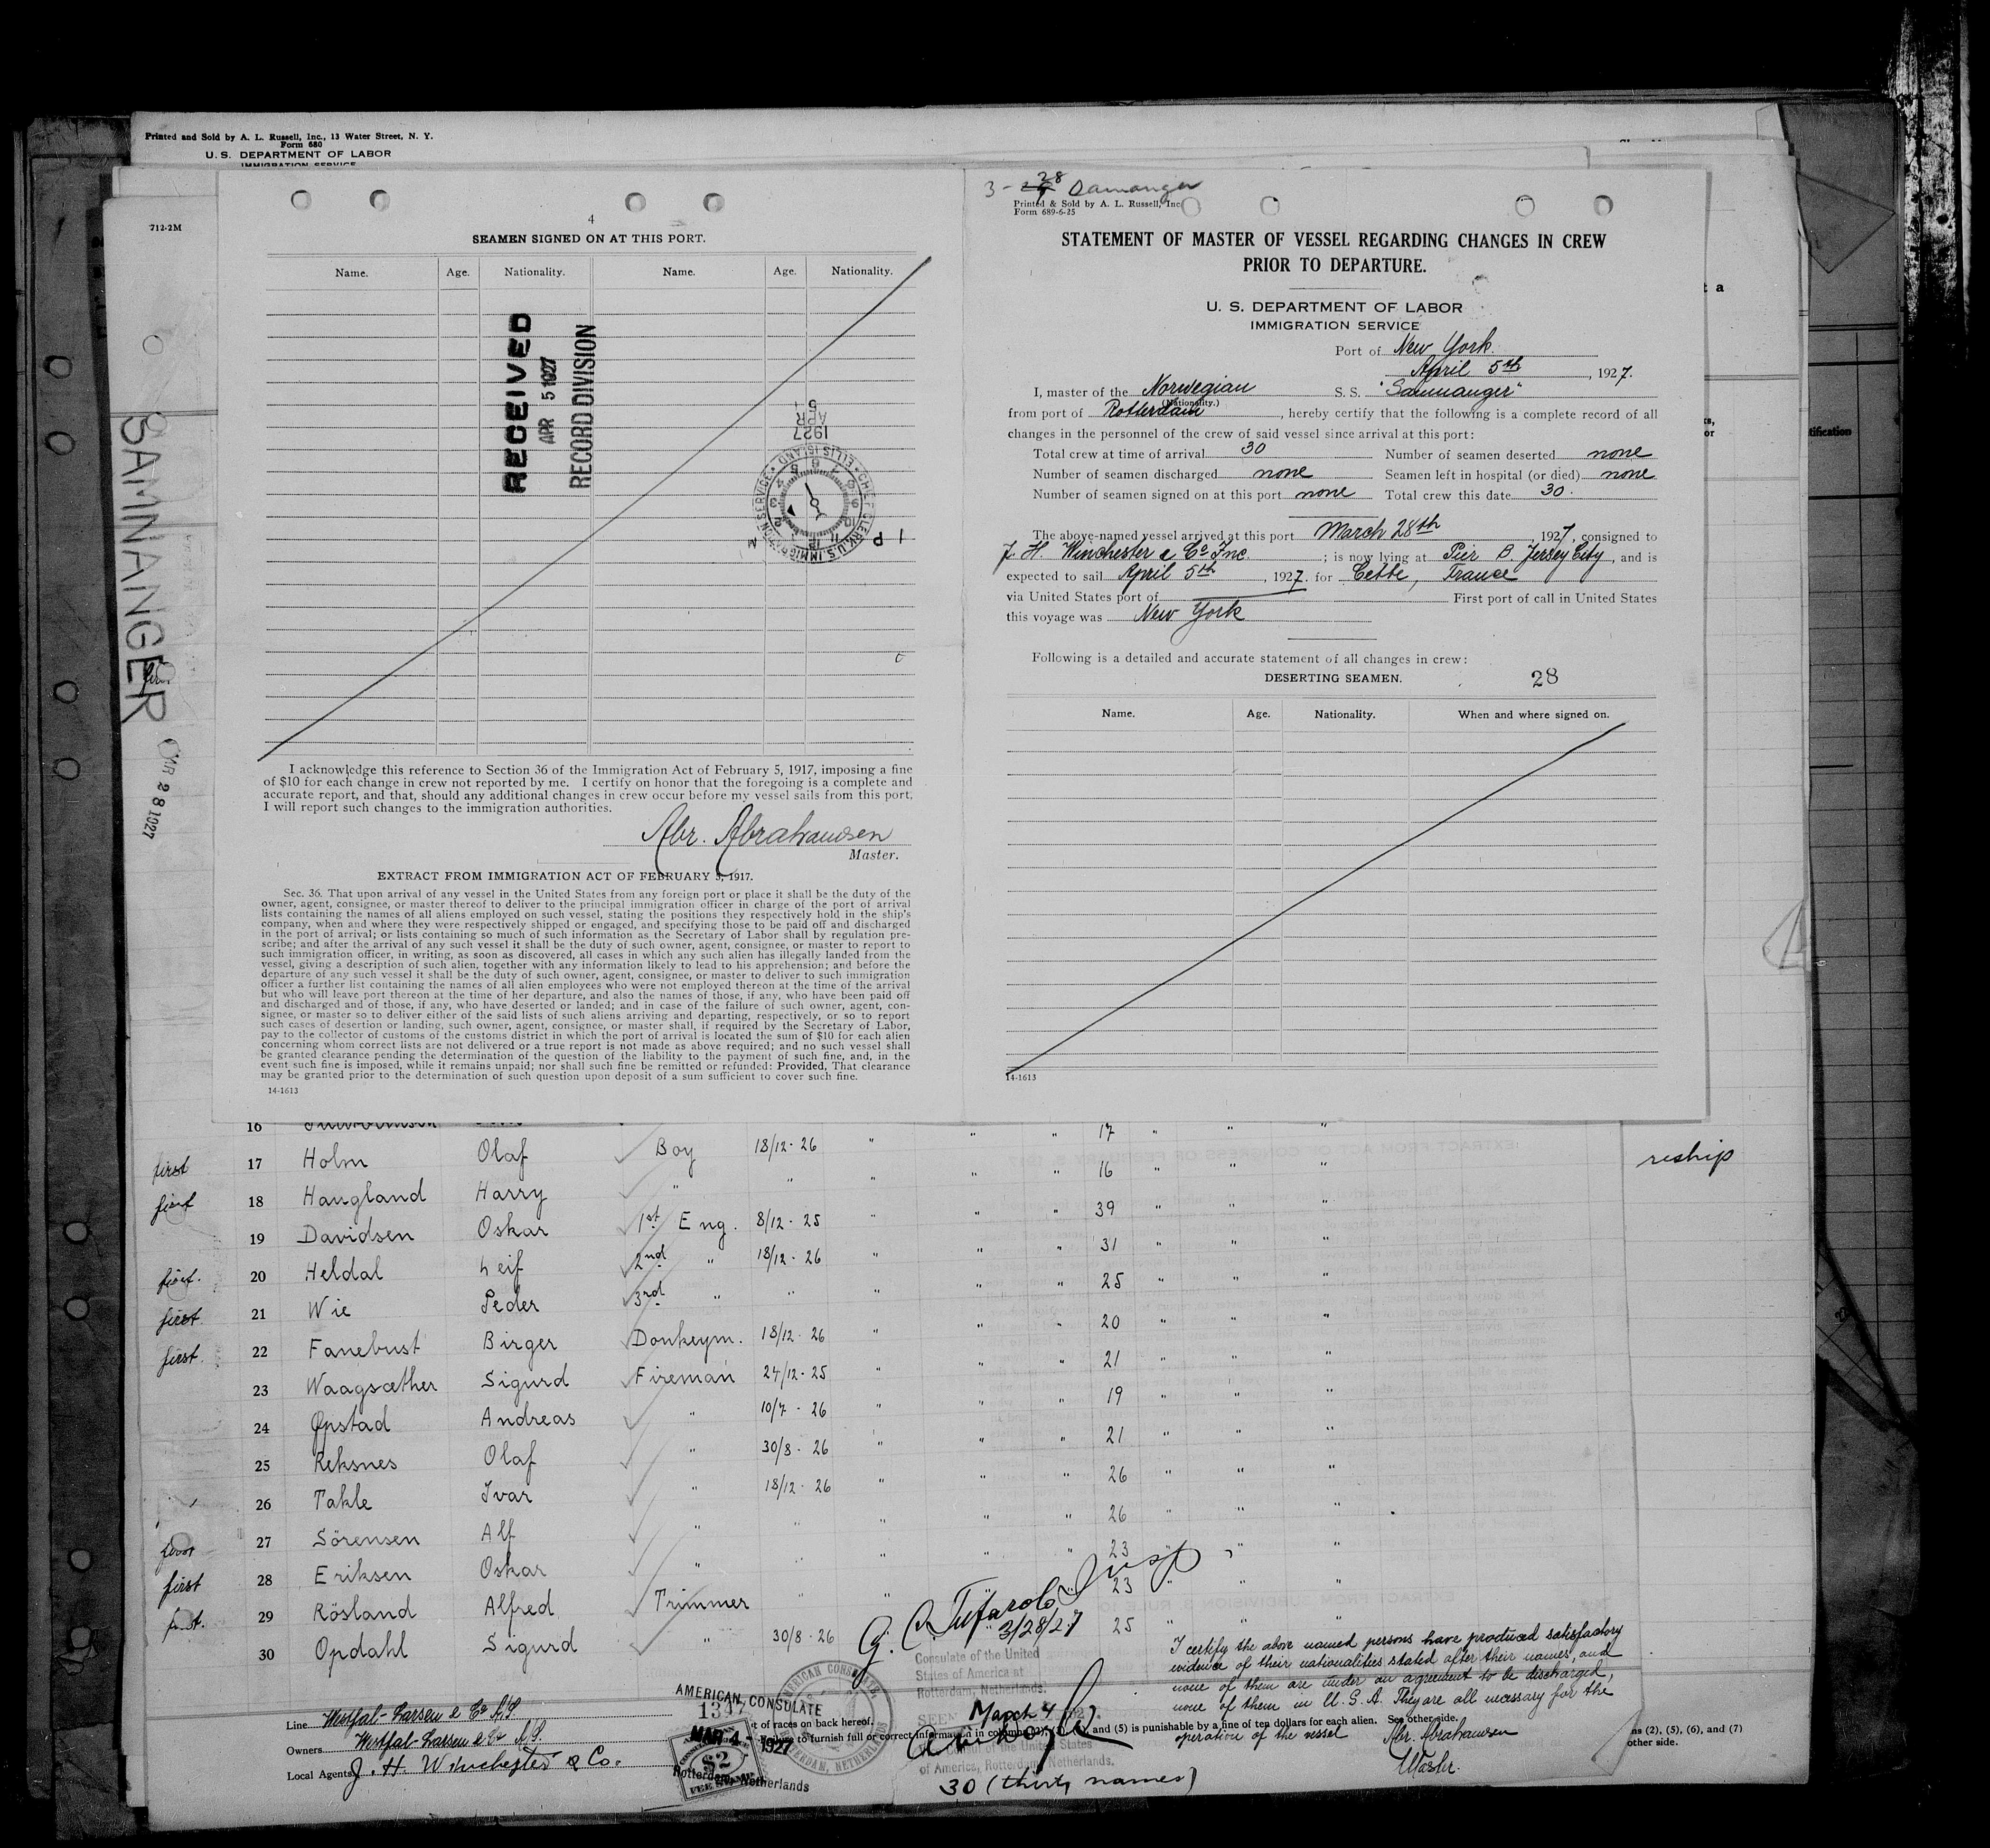 Printed and Sold by A. L. Russell, Inc., 13 Water Street, N. Y.
Form 680
U. S. DEPARTMENT OF LABOR
IMMIGRATION SERVICE
712-2M
SAMNANGER
MR 28 1927
4
SEAMEN SIGNED ON AT THIS PORT.
Name. Age. Nationality. Name. Age. Nationality.
RECEIVED
APR 5 1927
RECORD DIVISION
1927
APR
5
CHIEF CLERK, U.S. IMMIGRATION SERVICE ELLIS ISLAND
P M
I acknowledge this reference to Section 36 of the Immigration Act of February 5, 1917, imposing a fine
of $10 for each change in crew not reported by me. I certify on honor that the foregoing is a complete and
accurate report, and that, should any additional changes in crew occur before my vessel sails from this port,
I will report such changes to the immigration authorities.
Abr. Abrahamsen
Master.
EXTRACT FROM IMMIGRATION ACT OF FEBRUARY 5, 1917.
Sec. 36. That upon arrival of any vessel in the United States from any foreign port or place it shall be the duty of the
owner, agent, consignee, or master thereof to deliver to the principal immigration officer in charge of the port of arrival
lists containing the names of all aliens employed on such vessel, stating the positions they respectively hold in the ship's
company, when and where they were respectively shipped or engaged, and specifying those to be paid off and discharged
in the port of arrival; or lists containing so much of such information as the Secretary of Labor shall by regulation pre-
scribe; and after the arrival of any such vessel it shall be the duty of such owner, agent, consignee, or master to report to
such immigration officer, in writing, as soon as discovered, all cases in which any such alien has illegally landed from the
vessel, giving a description of such alien, together with any information likely to lead to his apprehension; and before the
departure of any such vessel it shall be the duty of such owner, agent, consignee, or master to deliver to such immigration
officer a further list containing the names of all alien employees who were not employed thereon at the time of the arrival
but who will leave port thereon at the time of her departure, and also the names of those, if any, who have been paid off
and discharged and of those, if any, who have deserted or landed; and in case of the failure of such owner, agent, con-
signee, or master so to deliver either of the said lists of such aliens arriving and departing, respectively, or so to report
such cases of desertion or landing, such owner, agent, consignee, or master shall, if required by the Secretary of Labor,
pay to the collector of customs of the customs district in which the port of arrival is located the sum of $10 for each alien
concerning whom correct lists are not delivered or a true report is not made as above required; and no such vessel shall
be granted clearance pending the determination of the question of the liability to the payment of such fine, and, in the
event such fine is imposed, while it remains unpaid; nor shall such fine be remitted or refunded: Provided, That clearance
may be granted prior to the determination of such question upon deposit of a sum sufficient to cover such fine.
14-1613
3- 28 Samanger
Printed & Sold by A. L. Russell, Inc
Form 689-6-25
STATEMENT OF MASTER OF VESSEL REGARDING CHANGES IN CREW
PRIOR TO DEPARTURE.
U. S. DEPARTMENT OF LABOR
IMMIGRATION SERVICE
Port of New York.
April 5th, 1927.
I, master of the Norwegian S. S. "Samnanger"
(Nationality.)
from port of Rotterdam, hereby certify that the following is a complete record of all
changes in the personnel of the crew of said vessel since arrival at this port:
Total crew at time of arrival 30 Number of seamen deserted none
Number of seamen discharged none Seamen left in hospital (or died) none
Number of seamen signed on at this port none Total crew this date 30.
The above-named vessel arrived at this port March 28th, 1927, consigned to
J. H. Winchester & Co Inc.; is now lying at Pier B. Jersey City, and is
expected to sail April 5th, 1927. for Cette, France
via United States port of First port of call in United States
this voyage was New York
Following is a detailed and accurate statement of all changes in crew:
DESERTING SEAMEN. 28
Name. Age. Nationality. When and where signed on.
14-1613
16 17 " " "
first 17 Holm Olaf Boy 18/12-26 " " " 16 " " " reship
first 18 Haugland Harry " " " " " 39 " " "
19 Davidsen Oskar 1st Eng. 8/12-25 " " " 31 " " "
first. 20 Heldal Leif 2nd " 18/12-26 " " " 25 " " "
first 21 Wie Peder 3rd " " " " " 20 " " "
first. 22 Fanebust Birger Donkeym. 18/12-26 " " " 21 " " "
23 Waagsæther Sigurd Fireman 24/12-25 " " " 19 " " "
24 Øpstad Andreas " 10/7-26 " " " 21 " " "
25 Reksnes Olaf " 30/8-26 " " " 26 " " "
26 Takle Ivar " 18/12-26 " " " 26 " " "
27 Sörensen Alf " " " " " 23 " " "
first 28 Eriksen Oskar " " " " " 23 " " "
first. 29 Rösland Alfred Trimmer " " 25 " " "
30 Opdahl Sigurd " 30/8-26
3/28/27
I certify the above named persons have produced satisfactory
evidence of their nationalities stated after their names, and
none of them are under an agreement to be discharged,
none of them in U. S. A. They are all necessary for the
operation of the vessel Abr. Abrahamsen
Master.
Consulate of the United
States of America at
Rotterdam, Netherlands.
SEEN March 4 1927.
Consul of the United States
of America, Rotterdam, Netherlands.
30 (thirty names)
AMERICAN CONSULATE
1347
MAR 4 - 1927
$2
Rotterdam, Netherlands
AMERICAN CONSULATE, ROTTERDAM, NETHERLANDS
Line Westfal-Larsen & Co A/S
Owners Westfal-Larsen & Co A/S.
Local Agents J. H. Winchester & Co.
t of races on back hereof.
Failure to furnish full or correct information in columns (2), and (5) is punishable by a fine of ten dollars for each alien. See other side.
ns (2), (5), (6), and (7)
other side.
tification